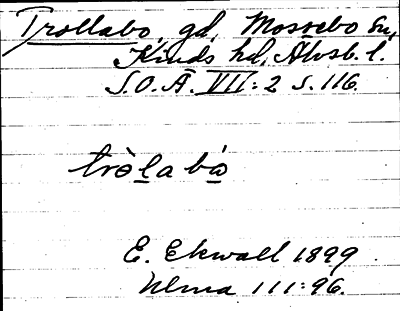 Trollabo, gd, Mossebo sn,
Kinds hd, Älvsb. l.
S.O.Ä. VII:2 s. 116.
tròlabò
E. Ekwall 1899
Ulma 111:96.